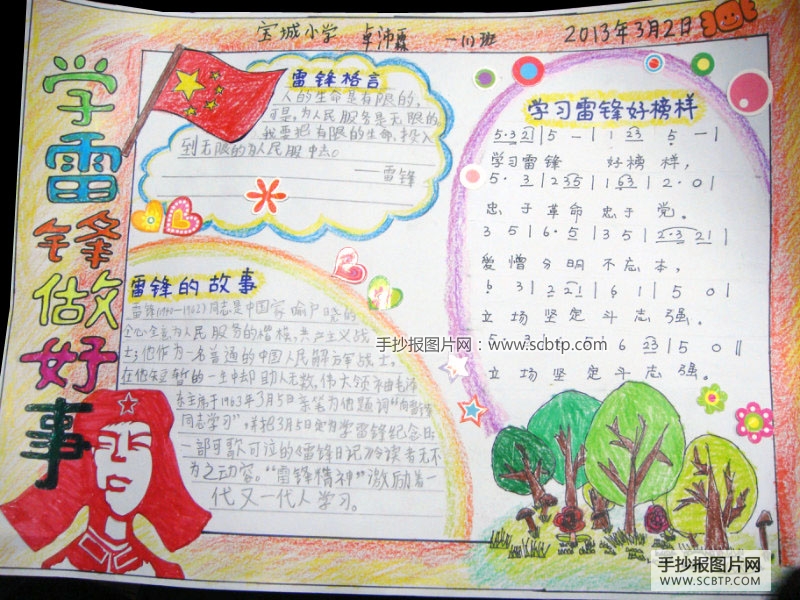 宝城小学 卓沛霖 一(1)班 2013年3月2日
学雷锋做好事
雷锋格言
人的生命是有限的,
可是,为人民服务是无限的
我要把有限的生命,投入
到无限的为人民服中去。
——雷锋
学习雷锋好榜样
5·3 2 1 | 5 — | 1 2 3 5 — |
学习雷锋 好榜样,
5 · 3 | 2 3 5 | 1 6 3 | 2 · 0 |
忠于革命忠于党。
3 5 | 6 · 5 | 3 5 | 2·3 2 1 |
爱憎分明不忘本,
6 3 | 2 2 1 | 6 1 | 5 0 |
立场坚定斗志强。
5 · 3 6 2 3 | 5 0 ||
立场坚定斗志强。
雷锋的故事
雷锋(1940—1962)同志是中国家喻户晓的
全心全意为人民服务的楷模,共产主义战
士;他作为一名普通的中国人民解放军战士,
在他短暂的一生中却助人无数,伟大领袖毛泽
东主席于1963年3月5日亲笔为他题词“向雷锋
同志学习”,并把3月5日定为学雷锋纪念日
一部可歌可泣的《雷锋日记》令读者无不
为之动容。“雷锋精神”激励着一
代又一代人学习。
手抄报图片网:www.scbtp.com
手抄报图片网
WWW.SCBTP.COM